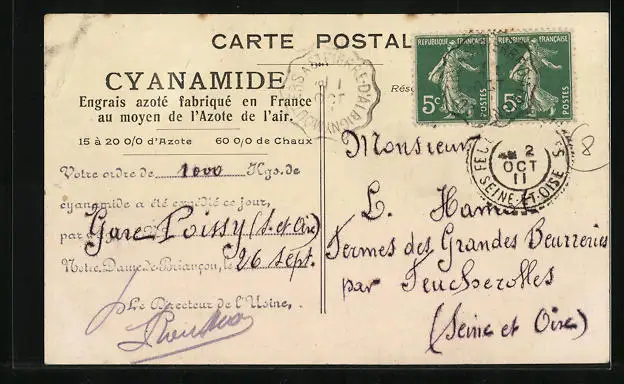 CARTE POSTAL
CYANAMIDE
Engrais azoté fabriqué en France
au moyen de l'Azote de l'air.
15 à 20 0/0 d'Azote 60 0/0 de Chaux
Votre ordre de 1000 Kgs. de
cyanamide a été expédié ce jour,
par
Gare Poissy (S. et Oise)
Notre-Dame-de-Briançon, le 26 sept.
Le Directeur de l'Usine,
REPUBLIQUE FRANÇAISE
5c POSTES
REPUBLIQUE FRANÇAISE
5c POSTES
OCT
2
OCT
11
SEINE-ET-OISE
8
Monsieur
L.
Fermes des Grandes Beurreries
par Feucherolles
(Seine et Oise)